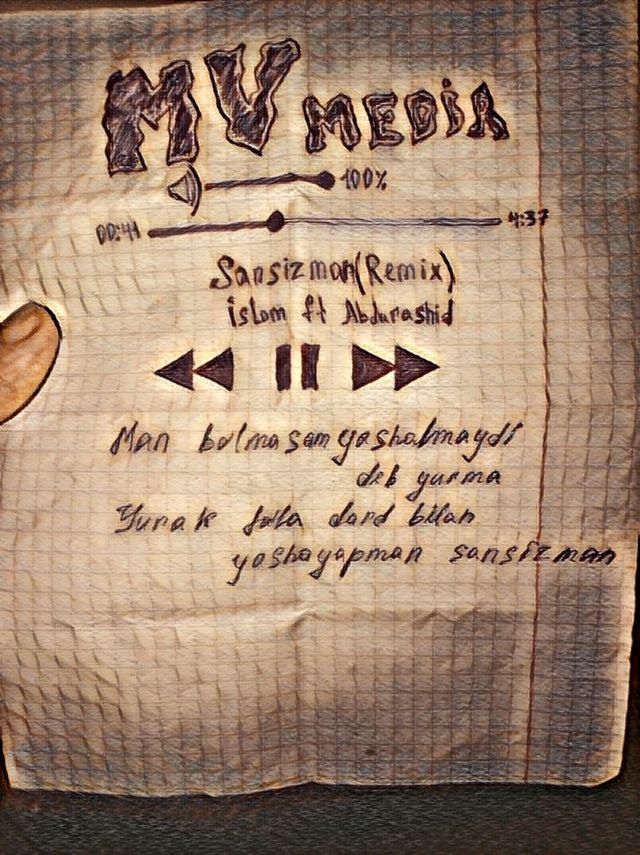 MV MEDİA
100%
00:41 4:37
Sansizman (Remix)
İslom ft Abdurashid
Man bulmasam yasholmaydi
deb yurma
Yurak tula dard bilan
yashayapman sansizman